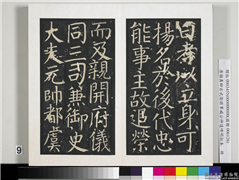 曰孝以立身可
揚名於後代忠
能事主故追榮
而及親開府儀
同三司兼御史
大夫帥都虞
9